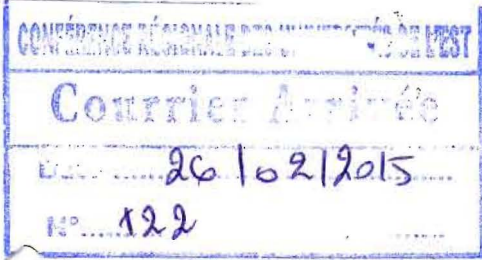 CONFÉRENCE RÉGIONALE DES UNIVERSITÉS DE L'EST
Courrier Arrivée
26/02/2015
N° 122